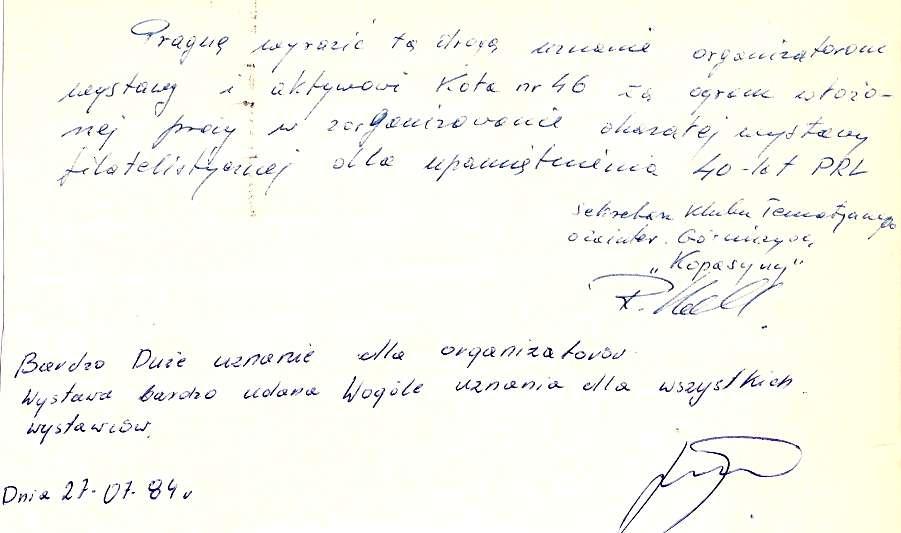 Pragnę wyrazić tą drogą uznanie organizatorom
wystawy i aktywowi Koła nr 46 za ogrom włożo-
nej pracy w zorganizowanie okazałej wystawy
filatelistycznej dla upamiętnienia 40-lat PRL
Sekretarz Klubu Tematycznego
o zainter. Górniczych
„Kopasyny”
Bardzo Duże uznanie dla organizatorów
Wystawa bardzo udana Wogóle uznania dla wszystkich
wystawców.
Dnia 27-07-84 r